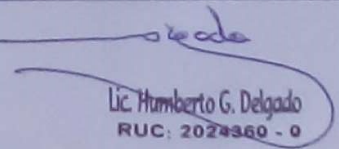 Lic. Humberto G. Delgado
RUC: 2024360 - 0